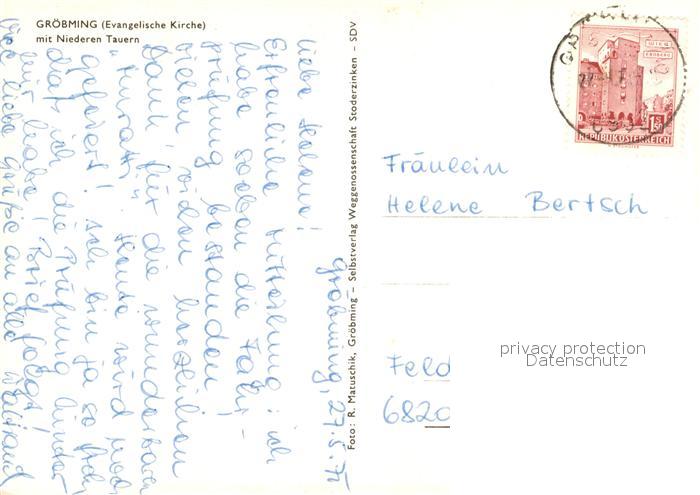 GRÖBMING (Evangelische Kirche)
mit Niederen Tauern
Gröbming, 27.5.
Liebe Helene!
Erfreuliche Mitteilung: ich
habe soeben die Fahr-
prüfung bestanden!
Vielen, vielen herzlichen
Dank für die wunderbaren
heute wird noch
gefeiert! Ich bin ja so froh,
daß ich die Prüfung hinter
mir habe! Brief folgt!
Viele liebe Grüße an alle
Waltraud
Foto: R. Matuschik, Gröbming – Selbstverlag Weggenossenschaft Stoderzinken – SDV
WIEN
ERDBERG
REPUBLIK ÖSTERREICH
Fräulein
Helene Bertsch
Feld
6820
privacy protection
Datenschutz